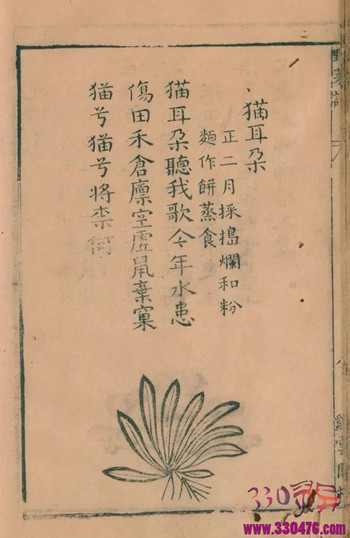 猫耳朵
正二月採搗爛和粉
麵作餅蒸食
猫耳朵聽我歌今年水患
傷田禾倉廩空虛鼠棄窠
猫兮猫兮將柰何
330
www.330476.com